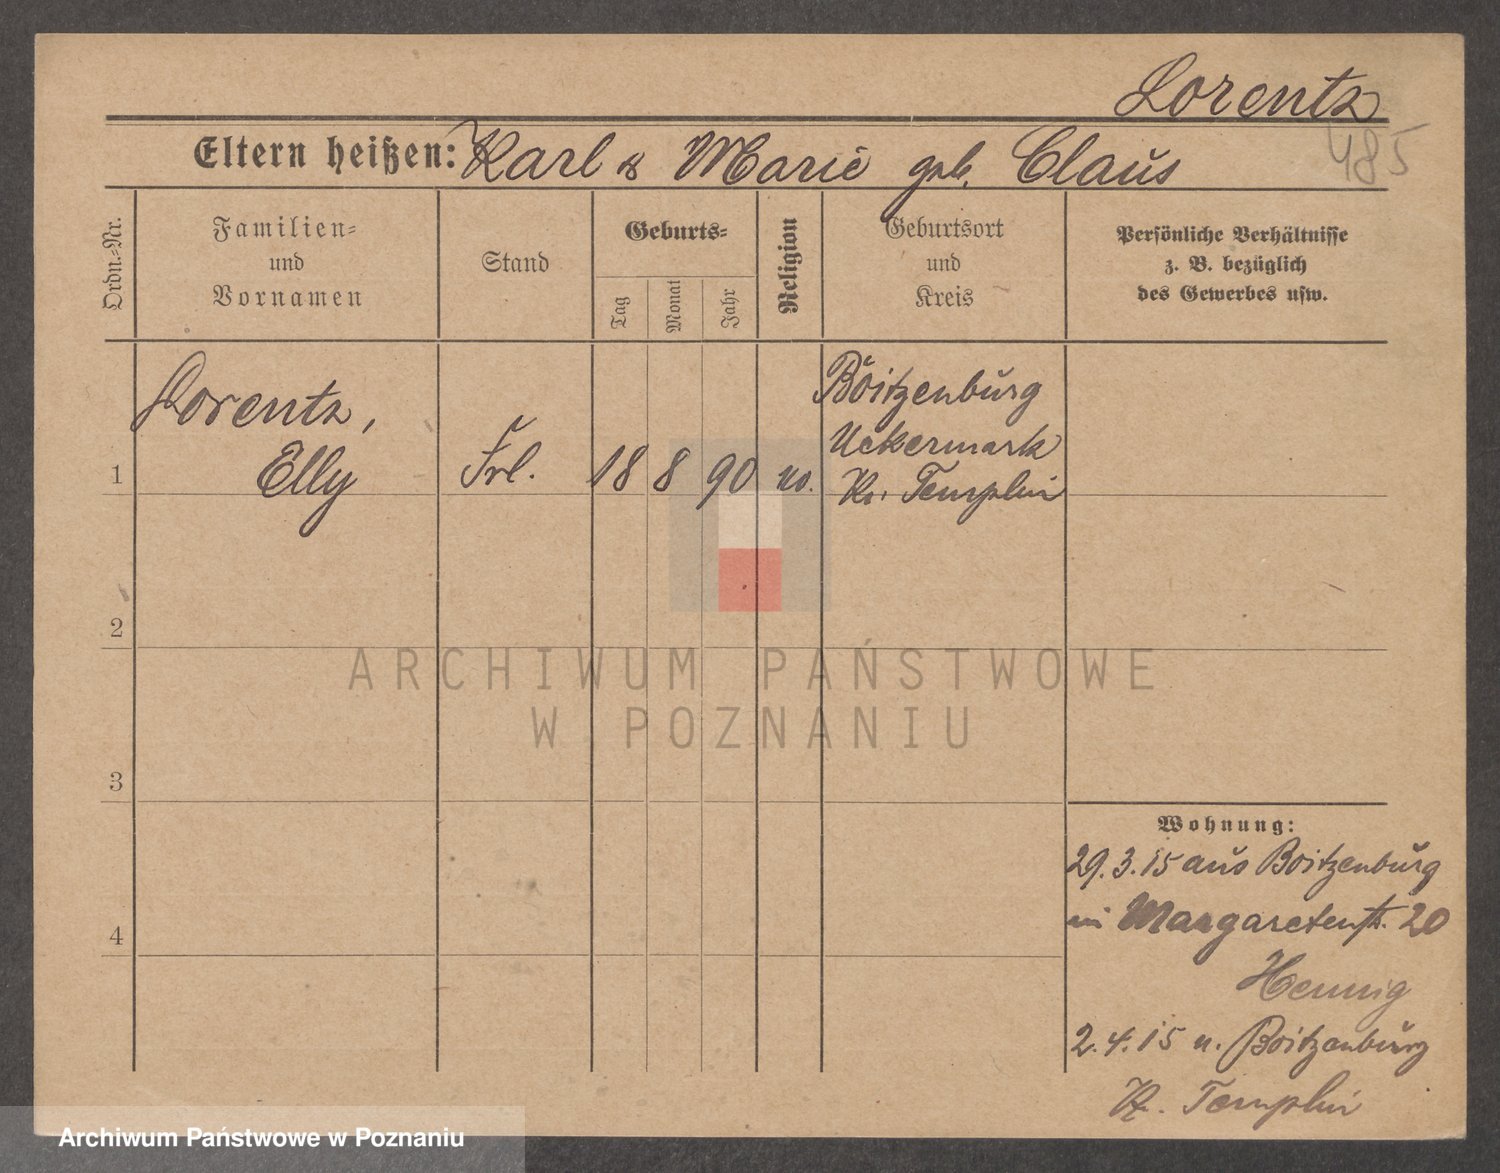 Lorentz
485
Eltern heißen: Karl & Marie geb. Claus
Ordn.-Nr.
Familien-
und
Vornamen
Stand
Geburts-
Tag
Monat
Jahr
Religion
Geburtsort
und
Kreis
Persönliche Verhältnisse
z. B. bezüglich
des Gewerbes usw.
Lorentz,
1 Elly Frl. 18 8 90
Boitzenburg
Uckermark
Kr. Templin
2
3
4
ARCHIWUM PAŃSTWOWE
W POZNANIU
Wohnung:
29.3.15 aus Boitzenburg
in Margaretenstr. 20
Hennig
2.4.15 n. Boitzenburg
Kr. Templin
Archiwum Państwowe w Poznaniu